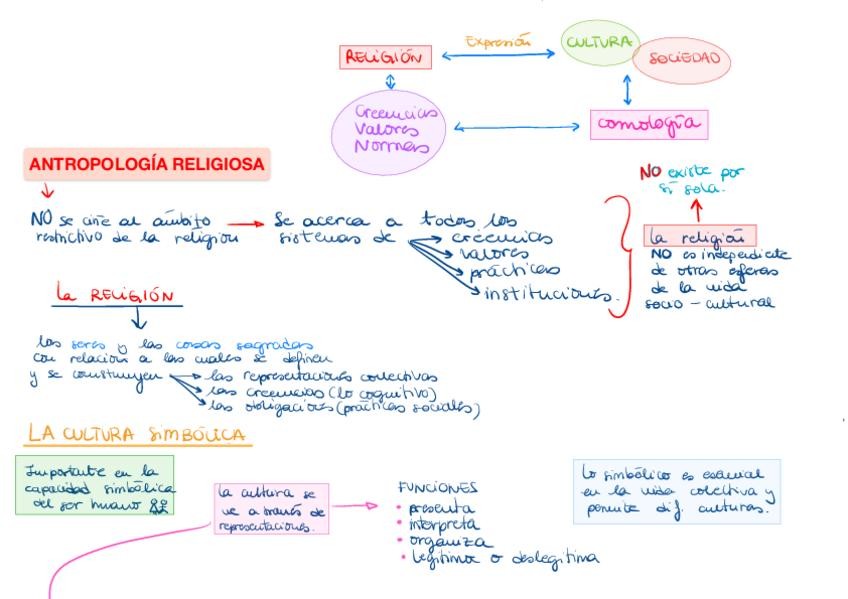 Expresión
RELIGIÓN
CULTURA
SOCIEDAD
Creencias
Valores
Normas
comología
ANTROPOLOGÍA RELIGIOSA
NO existe por
sí sola.
NO se ciñe al ámbito
restrictivo de la religión
Se acerca a todos los
sistemas de
creencias
valores
prácticas
instituciones.
la religión
NO es independiente
de otras esferas
de la vida
socio-cultural
la RELIGIÓN
los seres y las cosas sagradas
con relación a los cuales se definen
y se construyen
las representaciones colectivas
las creencias (lo cognitivo)
las obligaciones (prácticas sociales)
LA CULTURA SIMBÓLICA
Importante en la
capacidad simbólica
del ser humano
la cultura se
ve a través de
representaciones.
FUNCIONES
• presenta
• interpreta
• organiza
• legitima o deslegitima
Lo simbólico es esencial
en la vida colectiva y
permite dif. culturas.